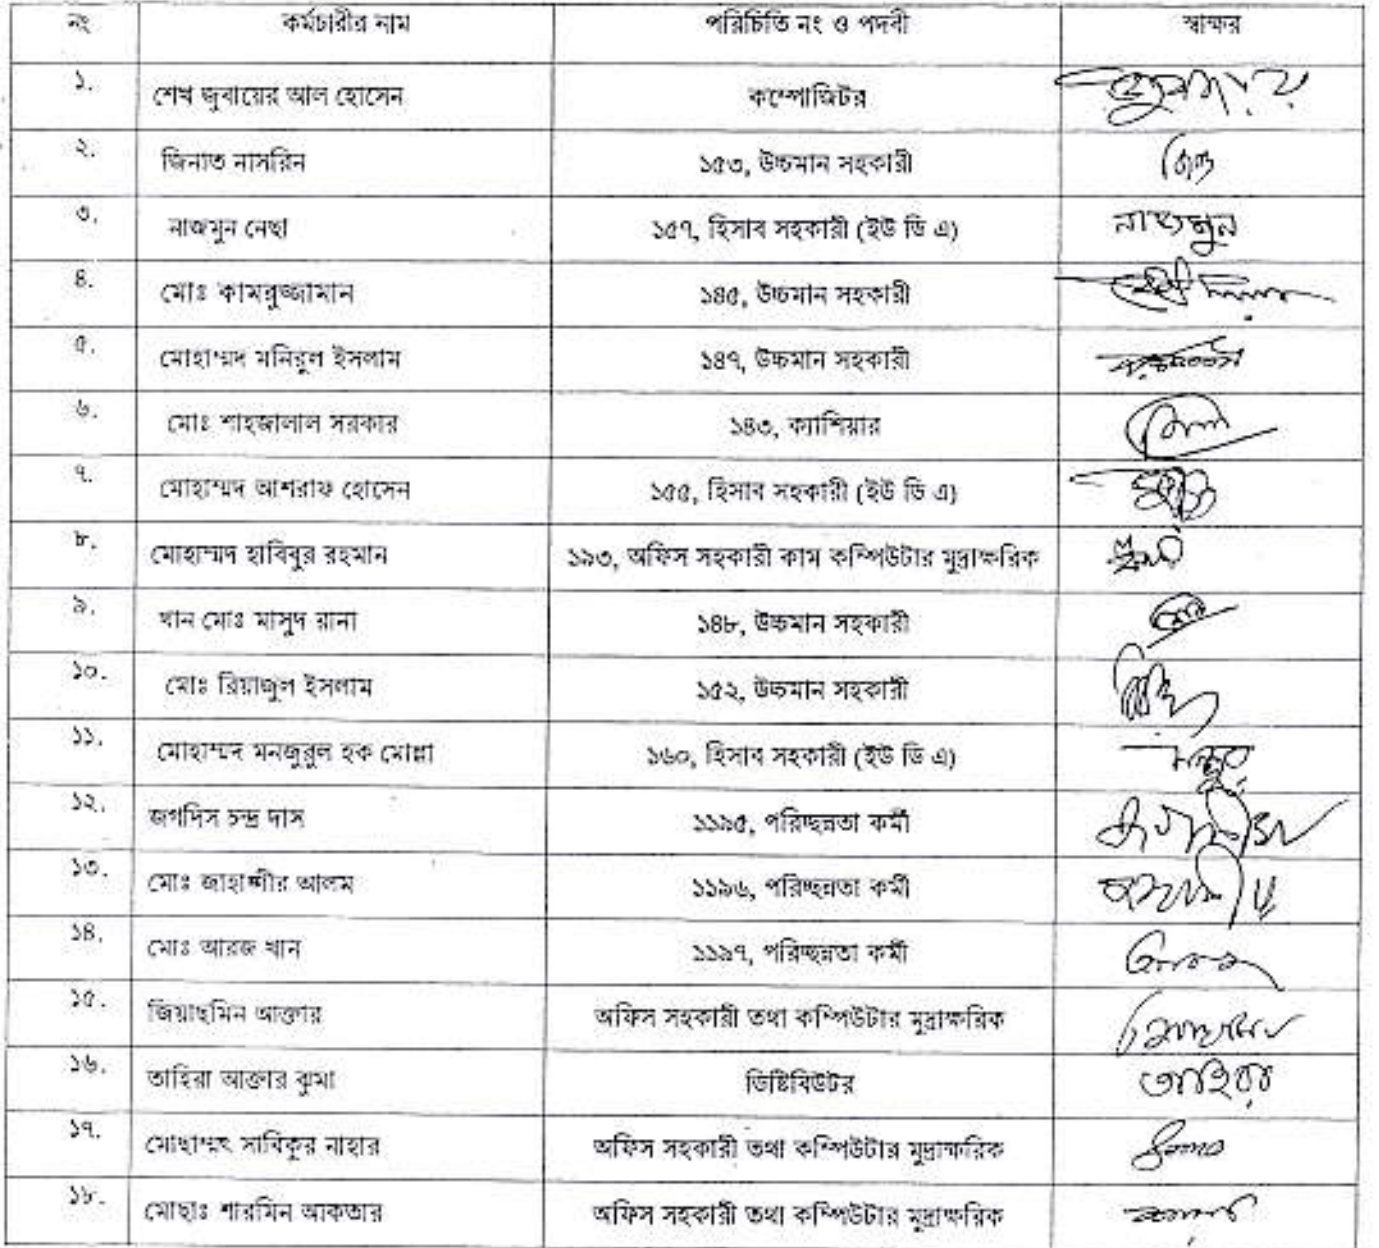 নং কর্মচারীর নাম পরিচিতি নং ও পদবী স্বাক্ষর
১. শেখ জুবায়ের আল হোসেন কম্পোজিটর
২. জিনাত নাসরিন ১৫৩, উচ্চমান সহকারী
৩. নাজমুন নেছা ১৫৭, হিসাব সহকারী (ইউ ডি এ) নাজমুন
৪. মোঃ কামরুজ্জামান ১৪৫, উচ্চমান সহকারী
৫. মোহাম্মদ মনিরুল ইসলাম ১৪৭, উচ্চমান সহকারী
৬. মোঃ শাহজালাল সরকার ১৪৩, ক্যাশিয়ার
৭. মোহাম্মদ আশরাফ হোসেন ১৫৫, হিসাব সহকারী (ইউ ডি এ)
৮. মোহাম্মদ হাবিবুর রহমান ১৯৩, অফিস সহকারী কাম কম্পিউটার মুদ্রাক্ষরিক
৯. খান মোঃ মাসুদ রানা ১৪৮, উচ্চমান সহকারী
১০. মোঃ রিয়াজুল ইসলাম ১৫২, উচ্চমান সহকারী
১১. মোহাম্মদ মনজুরুল হক মোল্লা ১৬০, হিসাব সহকারী (ইউ ডি এ)
১২. জগদিস চন্দ্র দাস ১১৯৫, পরিচ্ছন্নতা কর্মী
১৩. মোঃ জাহাঙ্গীর আলম ১১৯৬, পরিচ্ছন্নতা কর্মী
১৪. মোঃ আরজ খান ১১৯৭, পরিচ্ছন্নতা কর্মী
১৫. জিয়াছমিন আক্তার অফিস সহকারী তথা কম্পিউটার মুদ্রাক্ষরিক
১৬. তাহিরা আক্তার ঝুমা ডিষ্টিবিউটর তাহিরা
১৭. মোছাম্মৎ সাবিকুর নাহার অফিস সহকারী তথা কম্পিউটার মুদ্রাক্ষরিক
১৮. মোছাঃ শারমিন আকতার অফিস সহকারী তথা কম্পিউটার মুদ্রাক্ষরিক